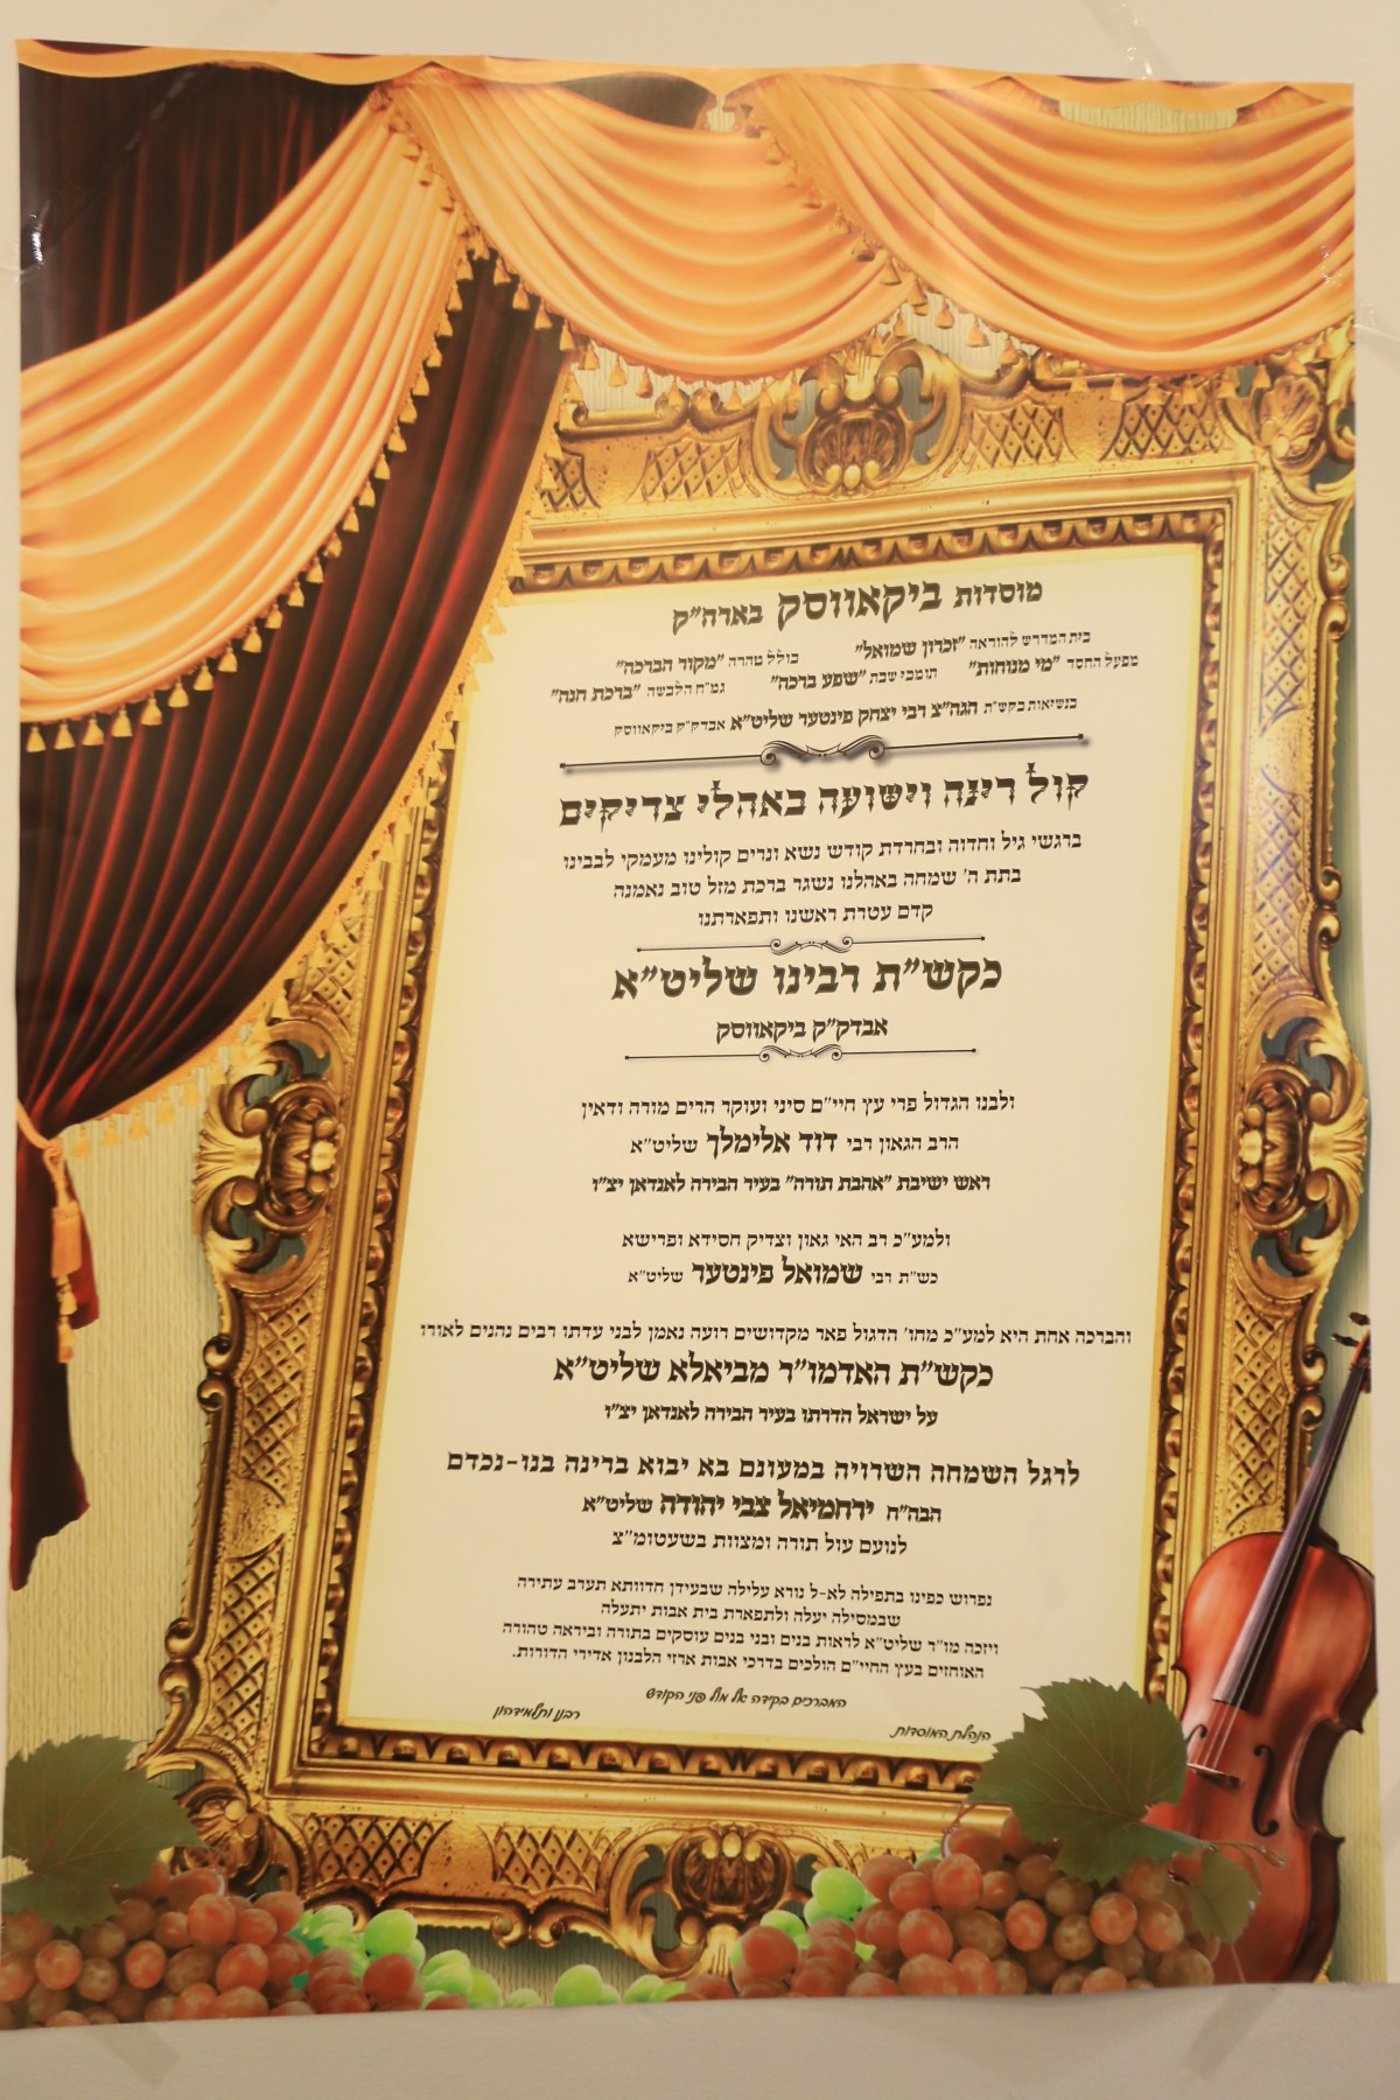 מוסדות ביקאווסק בארה"ק
בית המדרש להוראה "זכרון שמואל" כולל טהרה "מקור הברכה"
מפעל החסד "מי מנוחות" תומכי שבת "שפע ברכה" גמ"ח הלבשה "ברכת חנה"
בנשיאות כקש"ת הגה"צ רבי יצחק פינטער שליט"א אבדק"ק ביקאווסק
קול רינה וישועה באהלי צדיקים
ברגשי גיל וחדוה ובחרדת קודש נשא ונרים קולינו מעמקי לבבינו
בתת ה' שמחה באהלנו נשגר ברכת מזל טוב נאמנה
קדם עטרת ראשנו ותפארתנו
כקש"ת רבינו שליט"א
אבדק"ק ביקאווסק
ולבנו הגדול פרי עץ חיי"ם סיני ועוקר הרים מורה ודאין
הרב הגאון רבי דוד אלימלך שליט"א
ראש ישיבת "אהבת תורה" בעיר הבירה לאנדאן יצ"ו
ולמע"כ רב האי גאון וצדיק חסידא ופרישא
כש"ת רבי שמואל פינטער שליט"א
והברכה אחת היא למע"כ מחו' הדגול פאר מקדושים רועה נאמן לבני עדתו רבים נהנים לאורו
כקש"ת האדמו"ר מביאלא שליט"א
על ישראל הדרתו בעיר הבירה לאנדאן יצ"ו
לרגל השמחה השרויה במעונם בא יבוא ברינה בנו-נכדם
הבה"ח ירחמיאל צבי יהודה שליט"א
לנועם עול תורה ומצוות בשעטומ"צ
נפרוש כפינו בתפילה לא-ל נורא עלילה שבעידן חדוותא תערב עתירה
שבמסילה יעלה ולתפארת בית אבות יתעלה
ויזכה מו"ר שליט"א לראות בנים ובני בנים עוסקים בתורה וביראה טהורה
האוחזים בעץ החיי"ם הולכים בדרכי אבות ארזי הלבנון אדירי הדורות.
המברכים בקידה אל מול פני הקודש
הנהלת המוסדות רבנן ותלמידהון